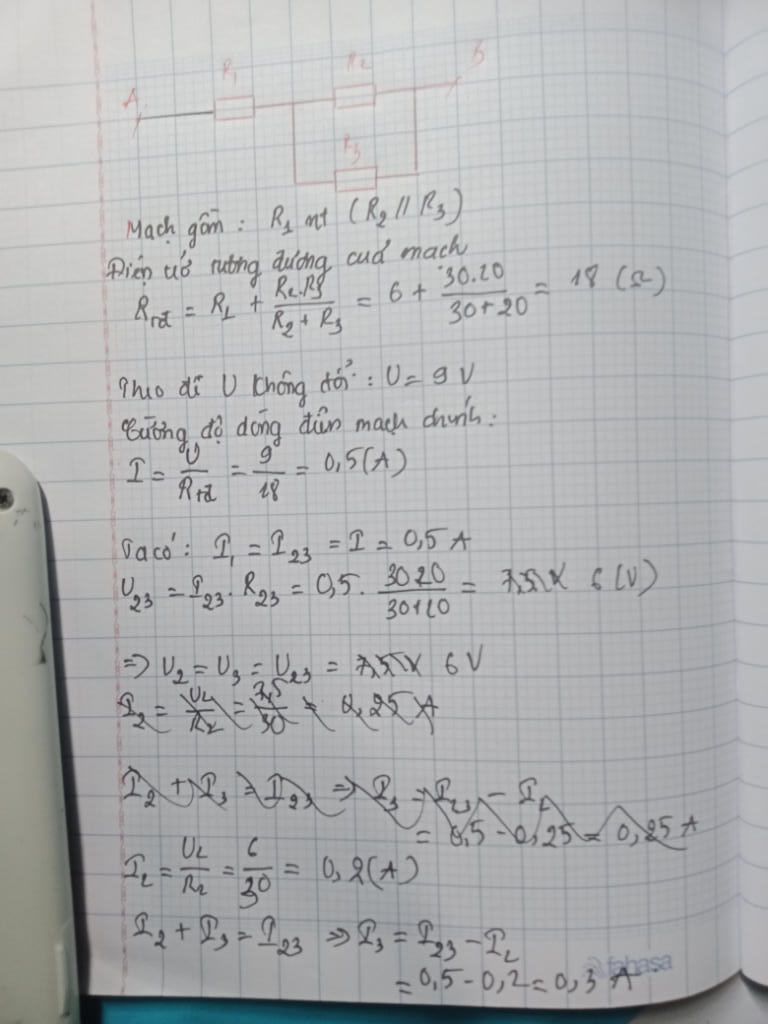 R₁ R₂ B
A
R₃
Mạch gồm : R₁ nt (R₂ // R₃)
Điện trở tương đương của mạch
Rtđ = R₁ + R₂.R₃ / R₂ + R₃ = 6 + 30.20 / 30+20 = 18 (Ω)
Theo đề U không đổi : U = 9 V
Cường độ dòng điện mạch chính :
I = U / Rtđ = 9 / 18 = 0,5 (A)
Ta có : I₁ = I₂₃ = I = 0,5 A
U₂₃ = I₂₃ . R₂₃ = 0,5 . 30 20 / 30+20 = 7,5 V 6 (V)
=> U₂ = U₃ = U₂₃ = 7,5 V 6 V
I₂ = U₂ / R₂ = 7,5 / 30 = 0,25 A
I₂ + I₃ = I₂₃ => I₃ = I₂₃ - I₂
= 0,5 - 0,25 = 0,25 A
I₂ = U₂ / R₂ = 6 / 30 = 0,2 (A)
I₂ + I₃ = I₂₃ => I₃ = I₂₃ - I₂
fahasa
= 0,5 - 0,2 = 0,3 A